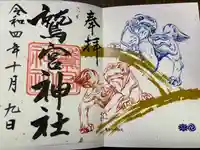 奉拝
鷲宮神社
令和四年十月九日